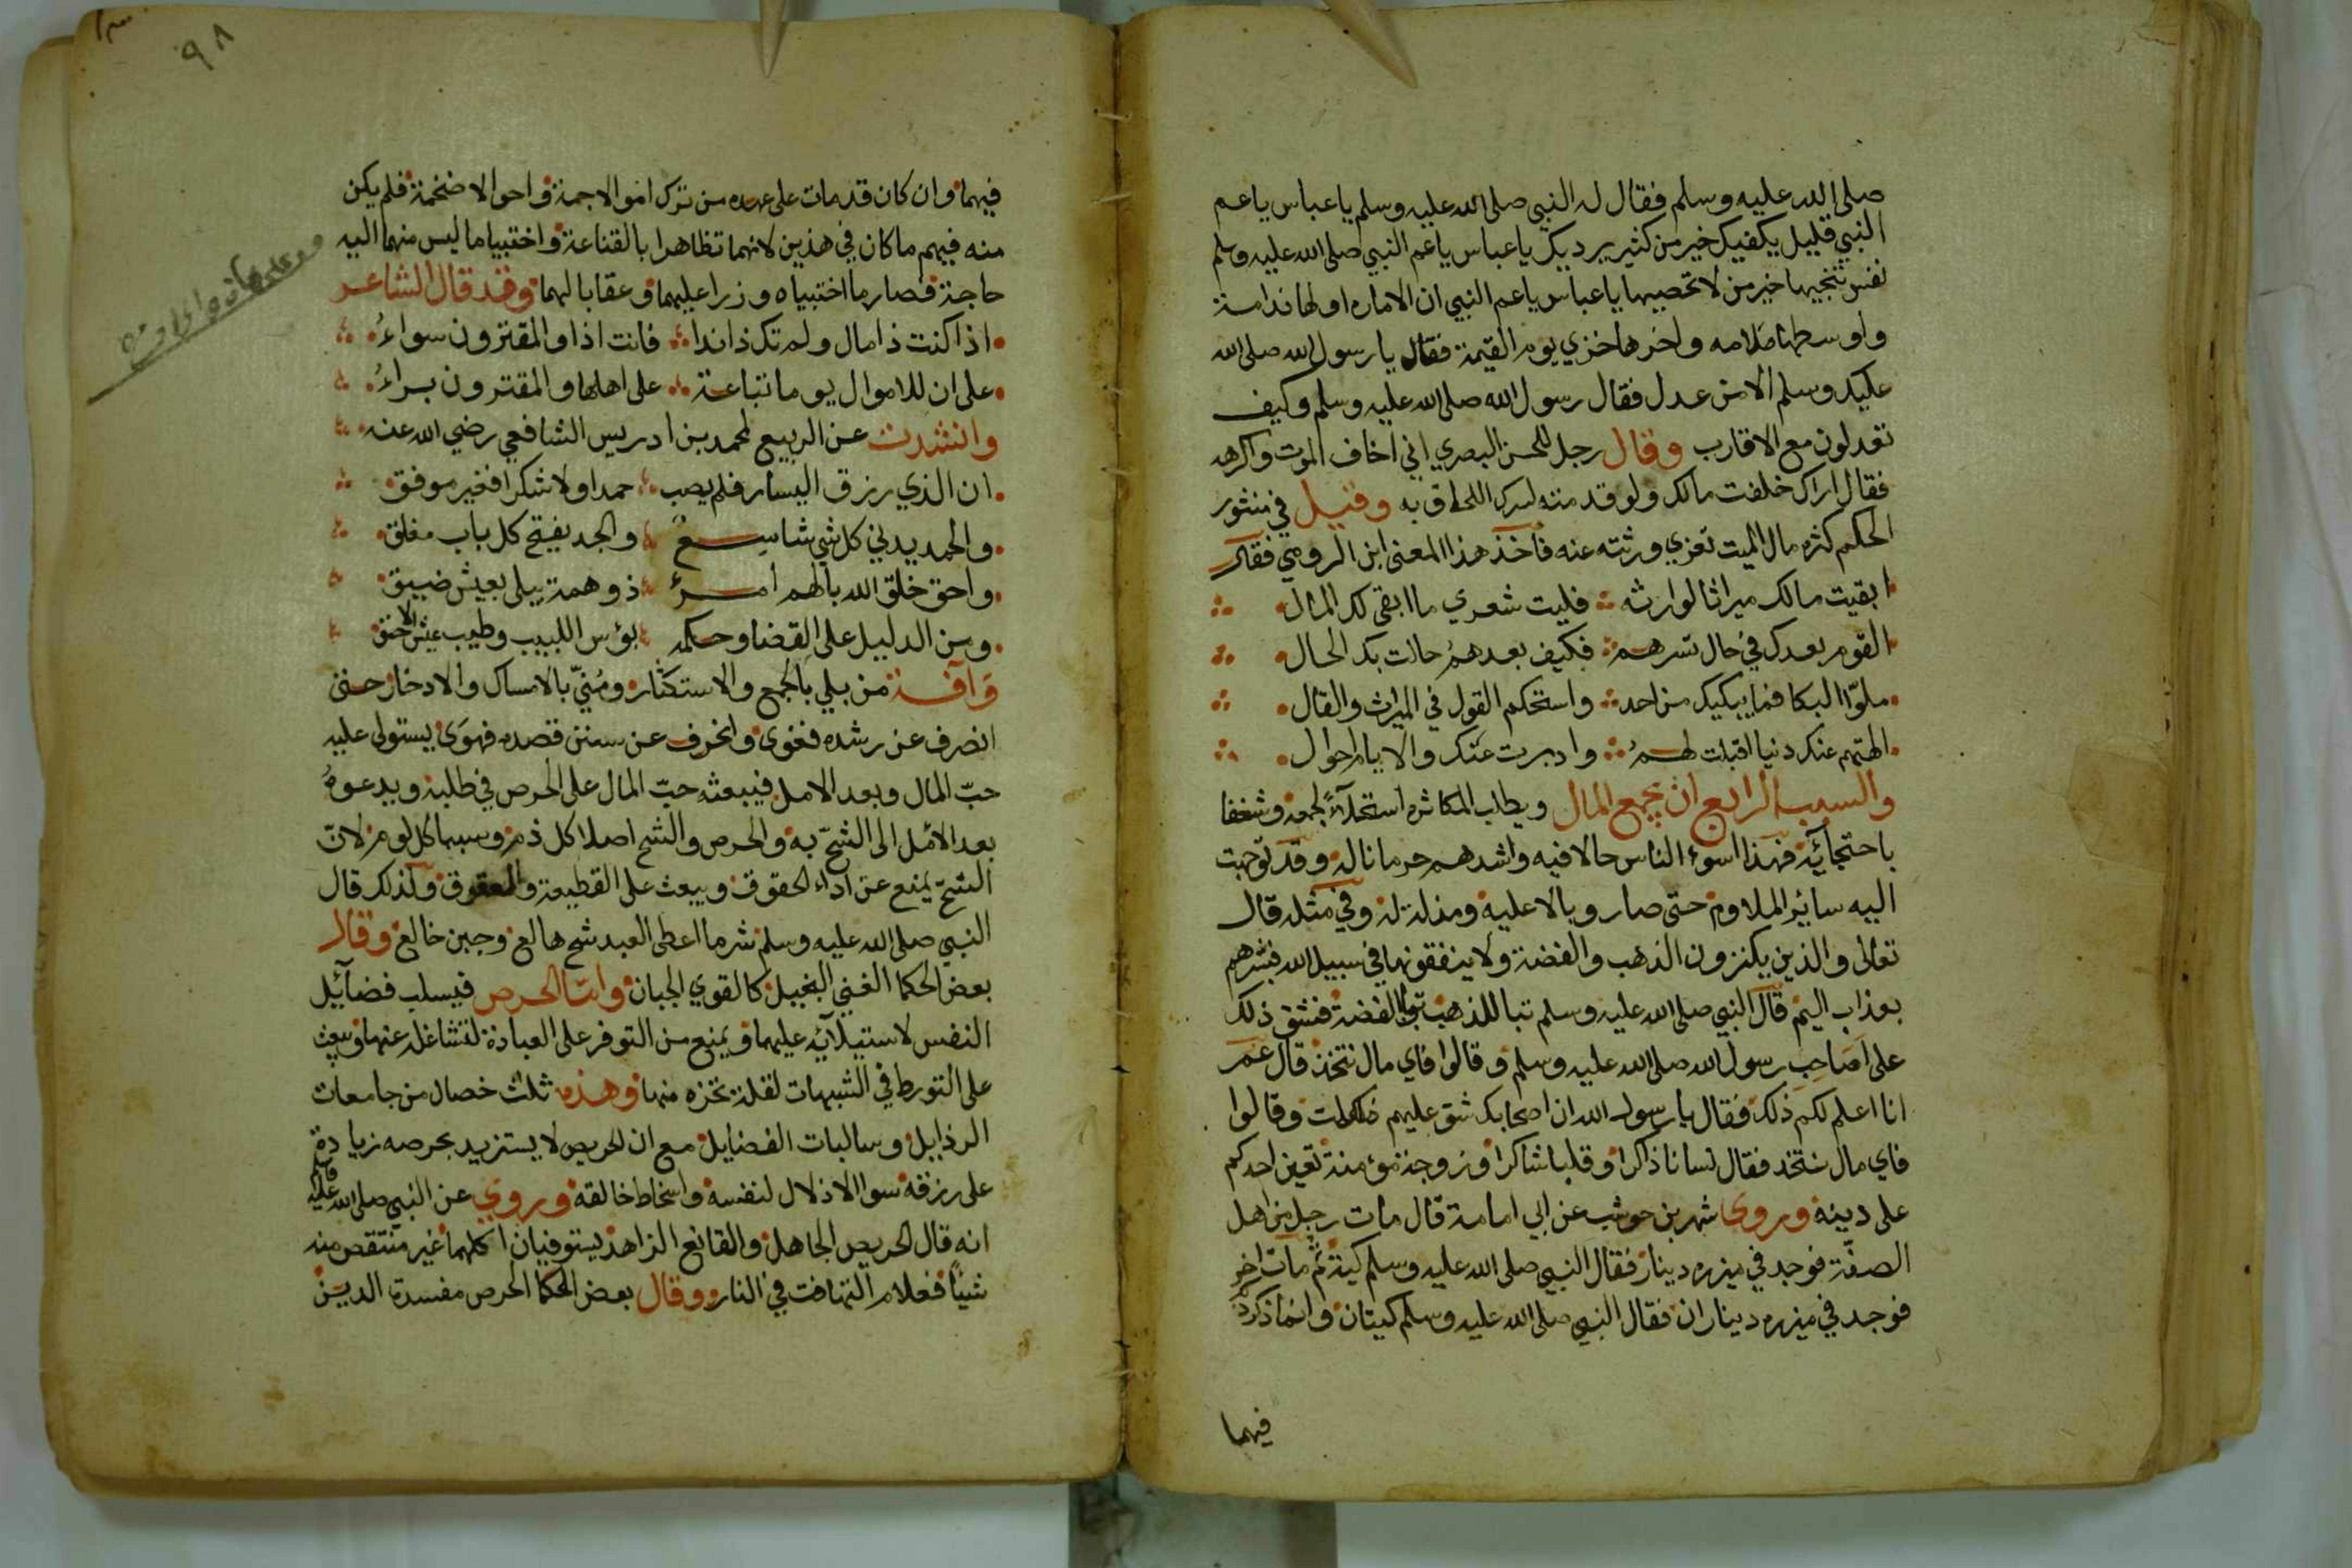 صلى الله عليه وسلم فقال له النبي صلى الله عليه وسلم يا عباس يا عم
النبي قليل يكفيك خير من كثير يرديك يا عباس يا عم النبي صلى الله عليه وسلم
نفس تنجيها خير من لا تحصيها يا عباس يا عم النبي ان الاماره اولها ندامة
واوسطها ملامه واخرها خزي يوم القيمة فقال يا رسول الله صلى الله
عليك وسلم الا من عدل فقال رسول الله صلى الله عليه وسلم وكيف
تعدلون مع الاقارب وقال رجل للحسن البصري اني اخاف الموت واكرهه
فقال اراك خلفت مالك ولو قدمته لسرك اللحاق به وقيل في منثور
الحكم كثرة مال الميت تعزي ورثته عنه فأخذ هذا المعنى ابن الرومي فقال
ابقيت مالك ميراثا لوارثه فليت شعري ما ابقى لك المال
القوم بعدك في حال تسرهم فكيف بعدهم حالت بك الحال
ملوا البكا فما يبكيك من احد واستحكم القول في الميراث والقال
الهتهم عنك دنيا اقبلت لهم وادبرت عنك والايام احوال
والسبب الرابع ان يجمع المال ويطلب المكاثره استحلاء لجمعه وشغفا
باحتجائه فهذا اسوء الناس حالا فيه واشدهم حرمانا له وقد توجهت
اليه سائر الملاوم حتى صار وبالا عليه ومذلة له وفي مثله قال
تعالى والذين يكنزون الذهب والفضة ولا ينفقونها في سبيل الله فبشرهم
بعذاب اليم قال النبي صلى الله عليه وسلم تبا للذهب تبا للفضة فشق ذلك
على اصاحب رسول الله صلى الله عليه وسلم وقالوا فاي مال نتخذ قال عمر
انا اعلم لكم ذلك فقال يا رسول الله ان اصحابك شق عليهم وقالوا
فاي مال نتخذ فقال لسانا ذاكرا وقلبا شاكرا وزوجة مؤمنة تعين احدكم
على دينه وروى شهر بن حوشب عن ابي امامة قال مات رجل من اهل
الصفة فوجد في ميزره دينار فقال النبي صلى الله عليه وسلم كية ثم مات اخر
فوجد في ميزره ديناران فقال النبي صلى الله عليه وسلم كيتان وانما ذكر
فيهما
٩٨
فيهما وان كان قد مات على عهده من ترك اموالا جمة واحوالا ضخمة فلم يكن
منه فيهم ما كان في هذين لانهما تظاهرا بالقناعة واحتبيا ما ليس منهما اليه
حاجة فصار ما احتبياه وزرا عليهما وعقابا لهما وقد قال الشاعر
اذا كنت ذا مال ولم تك ذا ندا فانت اذا والمقترون سواء
على ان للاموال يوما تباعة على اهلها والمقترون براء
وانشدت عن الربيع لمحمد بن ادريس الشافعي رضي الله عنه
ان الذي رزق اليسار فلم يصب حمدا ولا شكرا فغير موفق
والحمد يدني كل شي شاسع والجد يفتح كل باب مغلق
واحق خلق الله بالهم امرئ ذو همة يبلى بعيش ضيق
ومن الدليل على القضا وحكمه بؤس اللبيب وطيب عيش الاحمق
وآفة من بلي بالجمع والاستكثار ومني بالامساك والادخار حتى
انصرف عن رشده فغوى وانحرف عن سنن قصده فهوى يستولى عليه
حب المال وبعد الامل فيبعثه حب المال على الحرص في طلبه ويدعوه
بعد الامل الى الشح به والحرص والشح اصلا كل ذم وسببا كل لوم لان
الشح يمنع عن اداء الحقوق ويبعث على القطيعة والعقوق وكذلك قال
النبي صلى الله عليه وسلم شر ما اعطى العبد شح هالع وجبن خالع وقال
بعض الحكما الغني البخيل كالقوي الجبان واما الحرص فيسلب فضائل
النفس لاستيلائه عليها ويمنع من التوفر على العبادة لتشاغله عنها ويبعث
على التورط في الشبهات لقلة تحرزه منها وهذه ثلث خصال من جامعات
الرذايل وسالبات الفضايل مع ان الحريص لا يستزيد بحرصه زيادة
على رزقه سوا الاذلال لنفسه واسخاط خالقه وروي عن النبي صلى الله عليه وسلم
انه قال الحريص الجاهل والقانع الزاهد يستوفيان اكلهما غير منتقص منه
شيئا فعلام التهافت في النار وقال بعض الحكما الحرص مفسدة الدين